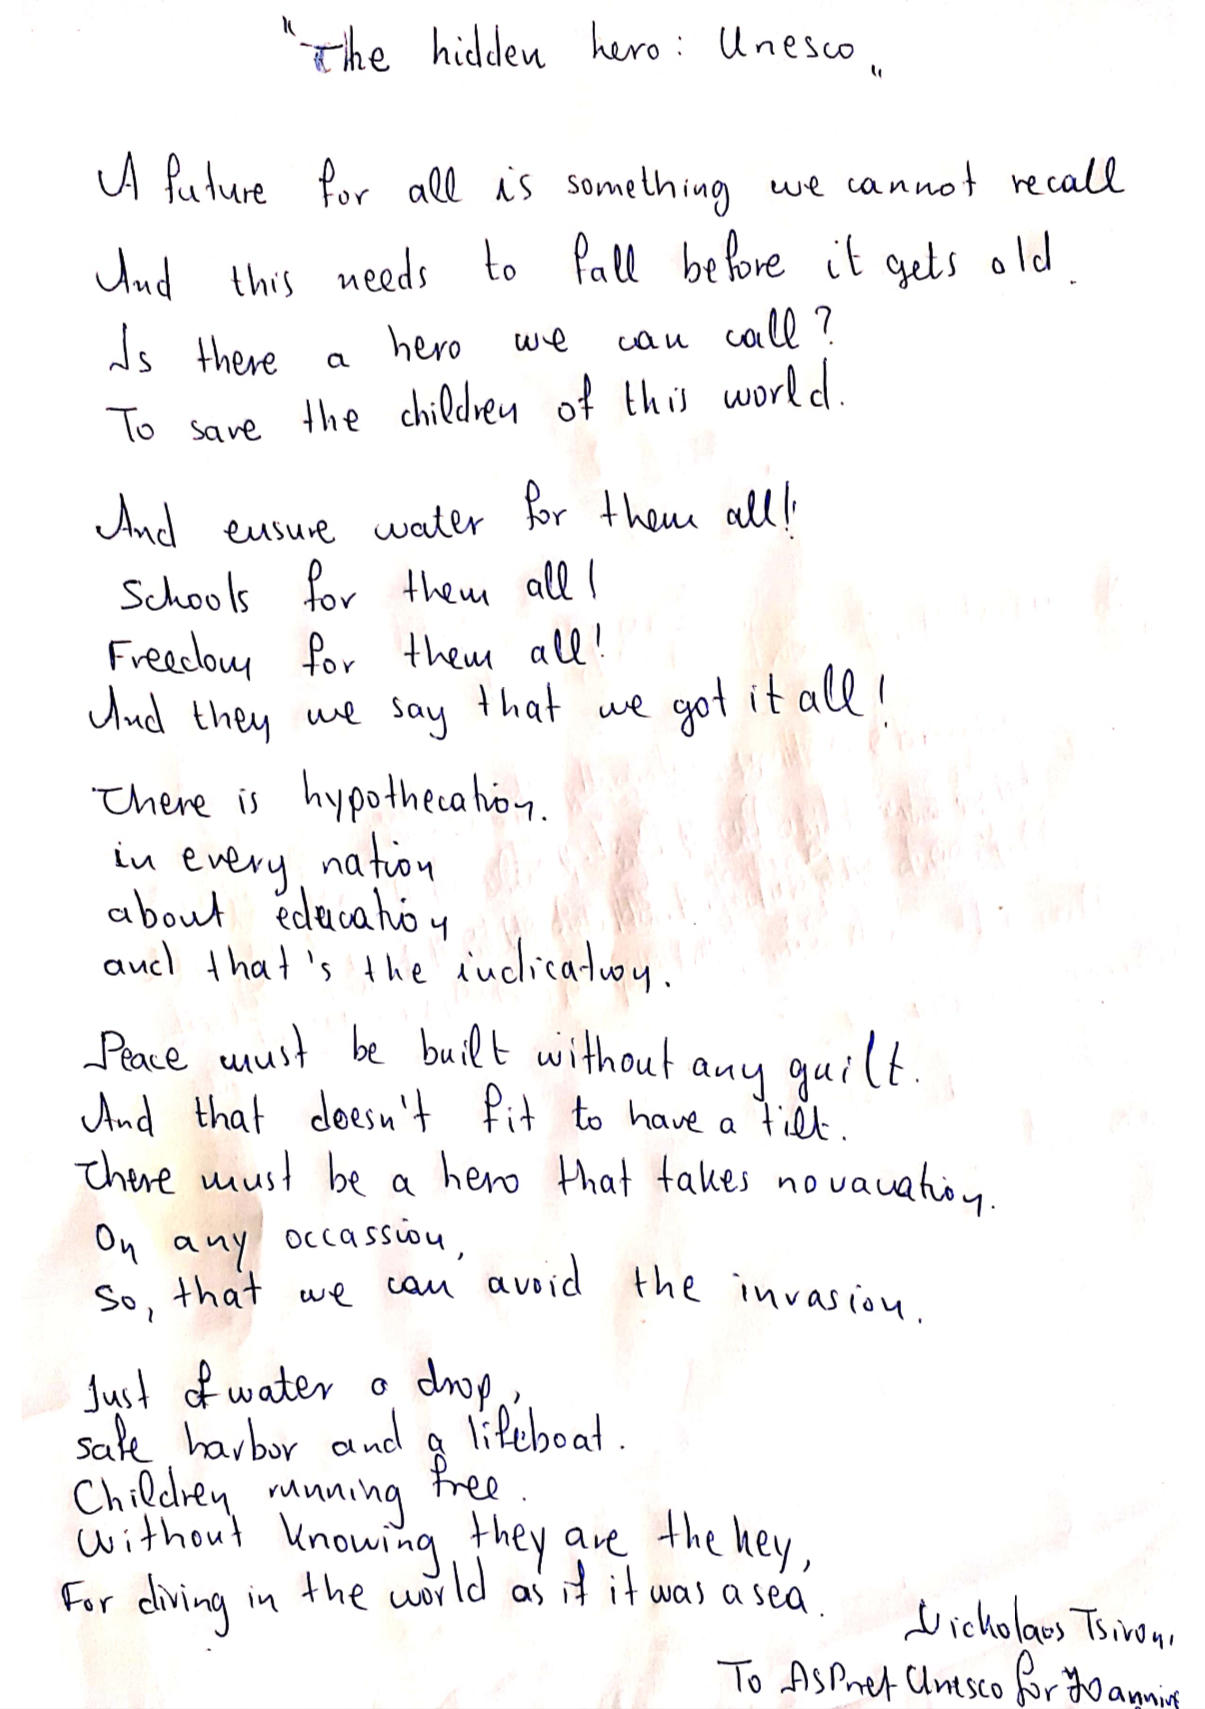 "The hidden hero: Unesco„
A future for all is something we cannot recall
And this needs to fall before it gets old.
Is there a hero we can call?
To save the children of this world.
And ensure water for them all!
Schools for them all!
Freedom for them all!
And they we say that we got it all!
There is hypothecation.
in every nation
about education
and that's the indication.
Peace must be built without any guilt.
And that doesn't fit to have a tilt.
There must be a hero that takes no vacation.
On any occassion,
So, that we can avoid the invasion.
Just of water a drop,
safe harbor and a lifeboat.
Children running free.
Without knowing they are the key,
For diving in the world as if it was a sea.
Nickolaos Tsironi
To AsPnet Unesco for